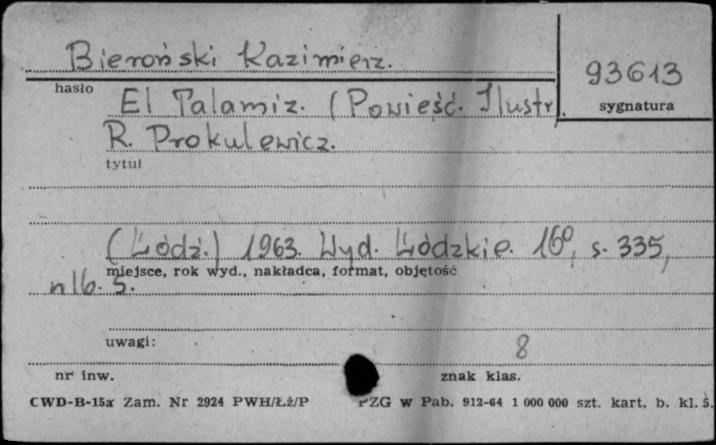 Bieroński Kazimierz.
93613
hasło
sygnatura
El Palamiz. (Powieść. Ilustr.
R. Prokulewicz.
tytuł
(Łódź.) 1963. Wyd. Łódzkie. 16°, s. 335,
miejsce, rok wyd., nakładca, format, objętość
nlb. 5.
uwagi:
8
nr inw.
znak klas.
CWD-B-15a Zam. Nr 2924 PWH/Łż/P
PZG w Pab. 912-64 1 000 000 szt. kart. b. kl. ś.